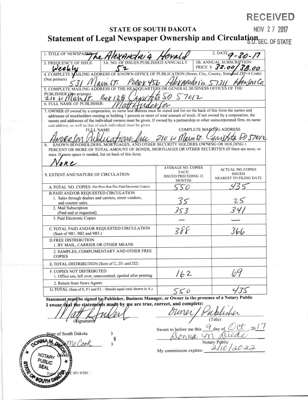 RECEIVED
NOV 27 2017
S.D. SEC. OF STATE
STATE OF SOUTH DAKOTA
Statement of Legal Newspaper Ownership and Circulation
1. TITLE OF NEWSPAPER The Alexandria Herald 2. DATE 9-30-17
3. FREQUENCY OF ISSUE Weekly 3A. NO. OF ISSUES PUBLISHED ANNUALLY 52 3B. ANNUAL SUBSCRIPTION PRICE $ 32.00/38.00
4. COMPLETE MAILING ADDRESS OF KNOWN OFFICE OF PUBLICATION (Street, City, County, State and Zip+4 Code)
(Not printers) 531 Main St. Alexandria 57311
5. COMPLETE MAILING ADDRESS OF THE HEADQUARTERS OF GENERAL BUSINESS OFFICES OF THE
PUBLISHER (Not printer)
210 W Main St. Box 128 57012
6. FULL NAME OF PUBLISHER:
7. OWNER (If owned by a corporation, its name and address must be stated and list on back of this form the names and
addresses of stockholders owning or holding 1 percent or more of total amount of stock. If not owned by a corporation, the
names and addresses of the individual owners must be given. If owned by a partnership or other unincorporated firm, its name
and address, as well as that of each individual must be given.)
FULL NAME COMPLETE MAILING ADDRESS
Publications, Inc 210 W Main St. 57012
8. KNOWN BONDHOLDERS, MORTGAGES, AND OTHER SECURITY HOLDERS OWNING OR HOLDING 1
PERCENT OR MORE OF TOTAL AMOUNT OF BONDS, MORTGAGES OR OTHER SECURITIES
None
9. EXTENT AND NATURE OF CIRCULATION
AVERAGE NO. COPIES EACH ISSUED PRECEDING 12 MONTHS
ACTUAL NO. COPIES ISSUED NEAREST TO FILING DATE
A. TOTAL NO. COPIES 550 435
B. PAID AND/OR REQUESTED CIRCULATION
1. Sales through dealers and carriers, street vendors, and counter sales 35 25
2. Mail Subscription (Paid and/or requested) 353 341
3. Paid Electronic Copies
C. TOTAL PAID AND/OR REQUESTED CIRCULATION 388 366
D. FREE DISTRIBUTION
1. BY MAIL, CARRIER OR OTHER MEANS
2. SAMPLES, COMPLIMENTARY AND OTHER FREE COPIES
E. TOTAL DISTRIBUTION (Sum of C, D1 and D2)
F. COPIES NOT DISTRIBUTED
1. Office use, left over, unaccounted, spoiled after printing 162 69
2. Return from News Agents
G. TOTAL 550 435
Statement must be signed by Publisher, Business Manager, or Owner in the presence of a Notary Public
I swear that the statements made by me are true, correct, and complete:
Owner/Publisher
(Signature) (Title)
State of South Dakota
Sworn to before me this 9 day of Oct 2017
Notary Public
My commission expires: 2/10/2022
NOTARY PUBLIC
SEAL
SOUTH DAKOTA